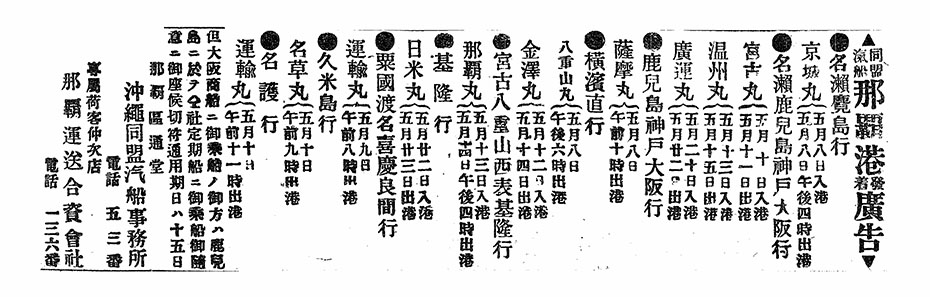 ▲同盟滊船那覇港發着廣告▼
●名瀬鹿島行
京城丸 五月八日入港 五月八日午後四時出港
●名瀬鹿兒島神戸大阪行
宮古丸 五月十日入港 五月十一日出港
温州丸 五月十三日入港 五月十五日出港
廣運丸 五月廿日入港 五月廿二日出港
●鹿兒島神戸大阪行
薩摩丸 五月八日 午前十時出港
●横濱直行
八重山丸 五月八日 午後六時出港
金澤丸 五月十二日入港 五月十四日出港
●宮古八重山西表基隆行
那覇丸 五月十三日入港 五月十四日午後四時出港
●基隆行
日米丸 五月廿二日入港 五月廿三日出港
●粟國渡名喜慶良間行
運輸丸 五月九日 午前八時出港
●久米島行
名草丸 五月十日 午前九時出港
●名護行
運輸丸 五月十日 午前十一時出港
但大阪商船ニ御乗船ノ御方ハ鹿兒
島ニ於テ仝社定期船ニ御乗船御随
意ニ御座候切符通用期日ハ十五日
那覇區通堂
沖繩同盟汽船事務所
電話 五三番
專屬荷客仲次店
那覇運送合資會社
電話 一三六番